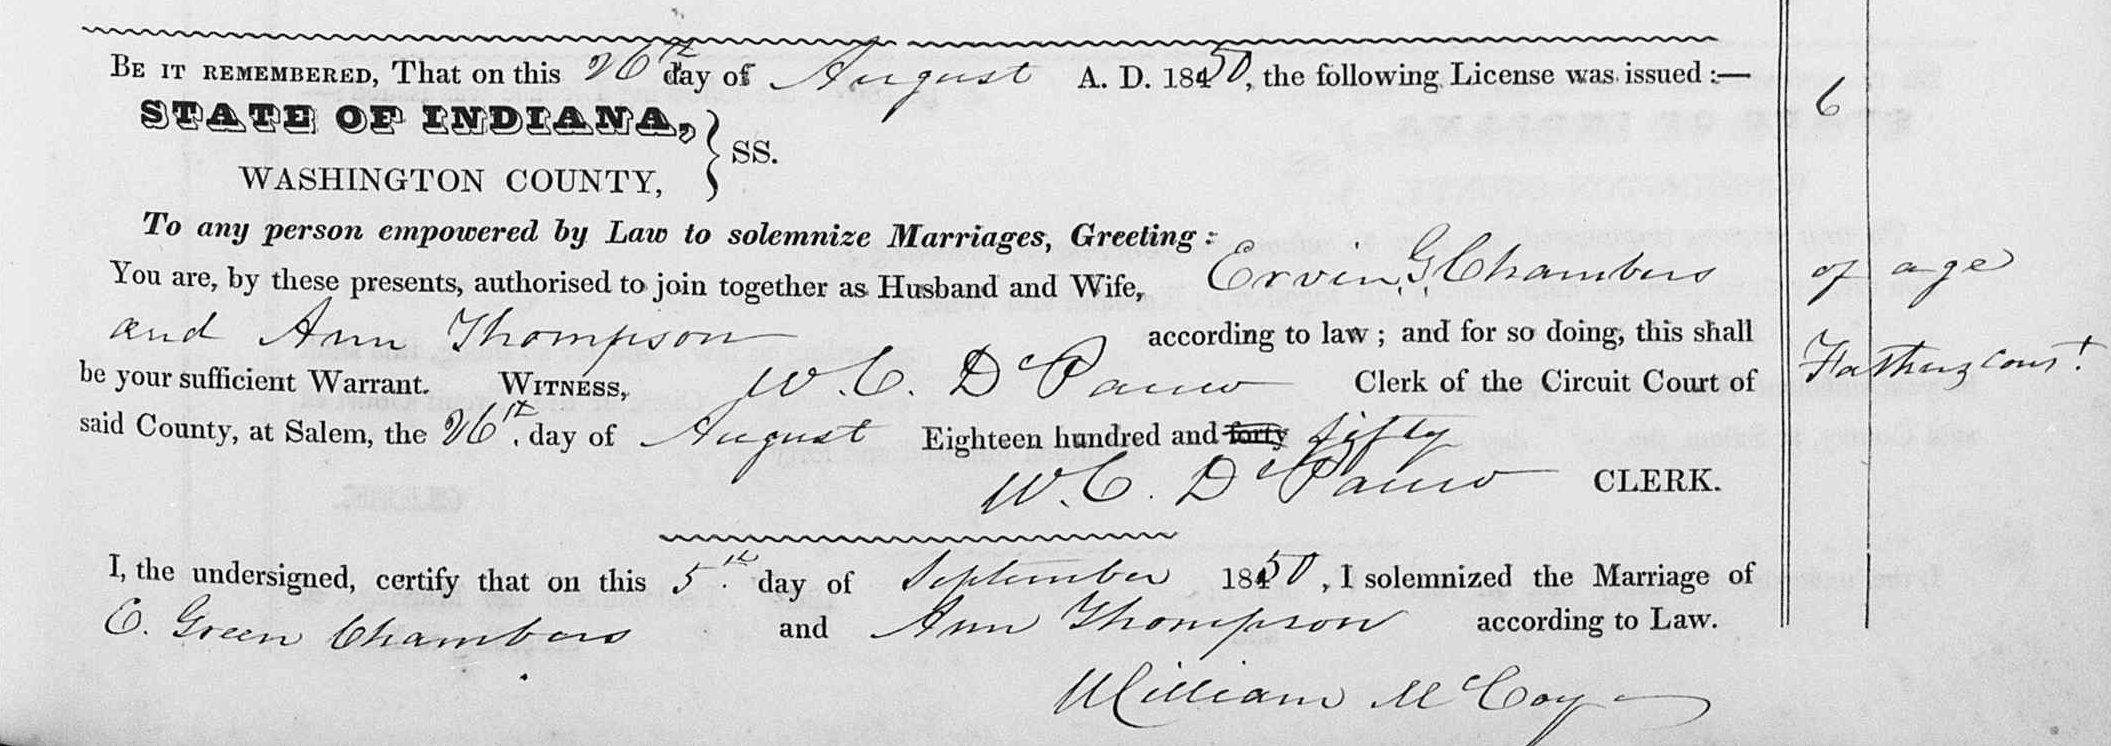 BE IT REMEMBERED, That on this 26th day of August A. D. 18450, the following License was issued :—
6
STATE OF INDIANA,
WASHINGTON COUNTY, } SS.
To any person empowered by Law to solemnize Marriages, Greeting :
You are, by these presents, authorised to join together as Husband and Wife, Ervin G Chambers
of age
and Ann Thompson according to law ; and for so doing, this shall
Fathers const.
be your sufficient Warrant. WITNESS, W. C. DePauw Clerk of the Circuit Court of
said County, at Salem, the 26th. day of August Eighteen hundred and forty fifty
W. C. DePauw CLERK.
I, the undersigned, certify that on this 5th. day of September 18450, I solemnized the Marriage of
E. Green Chambers and Ann Thompson according to Law.
William McCoy